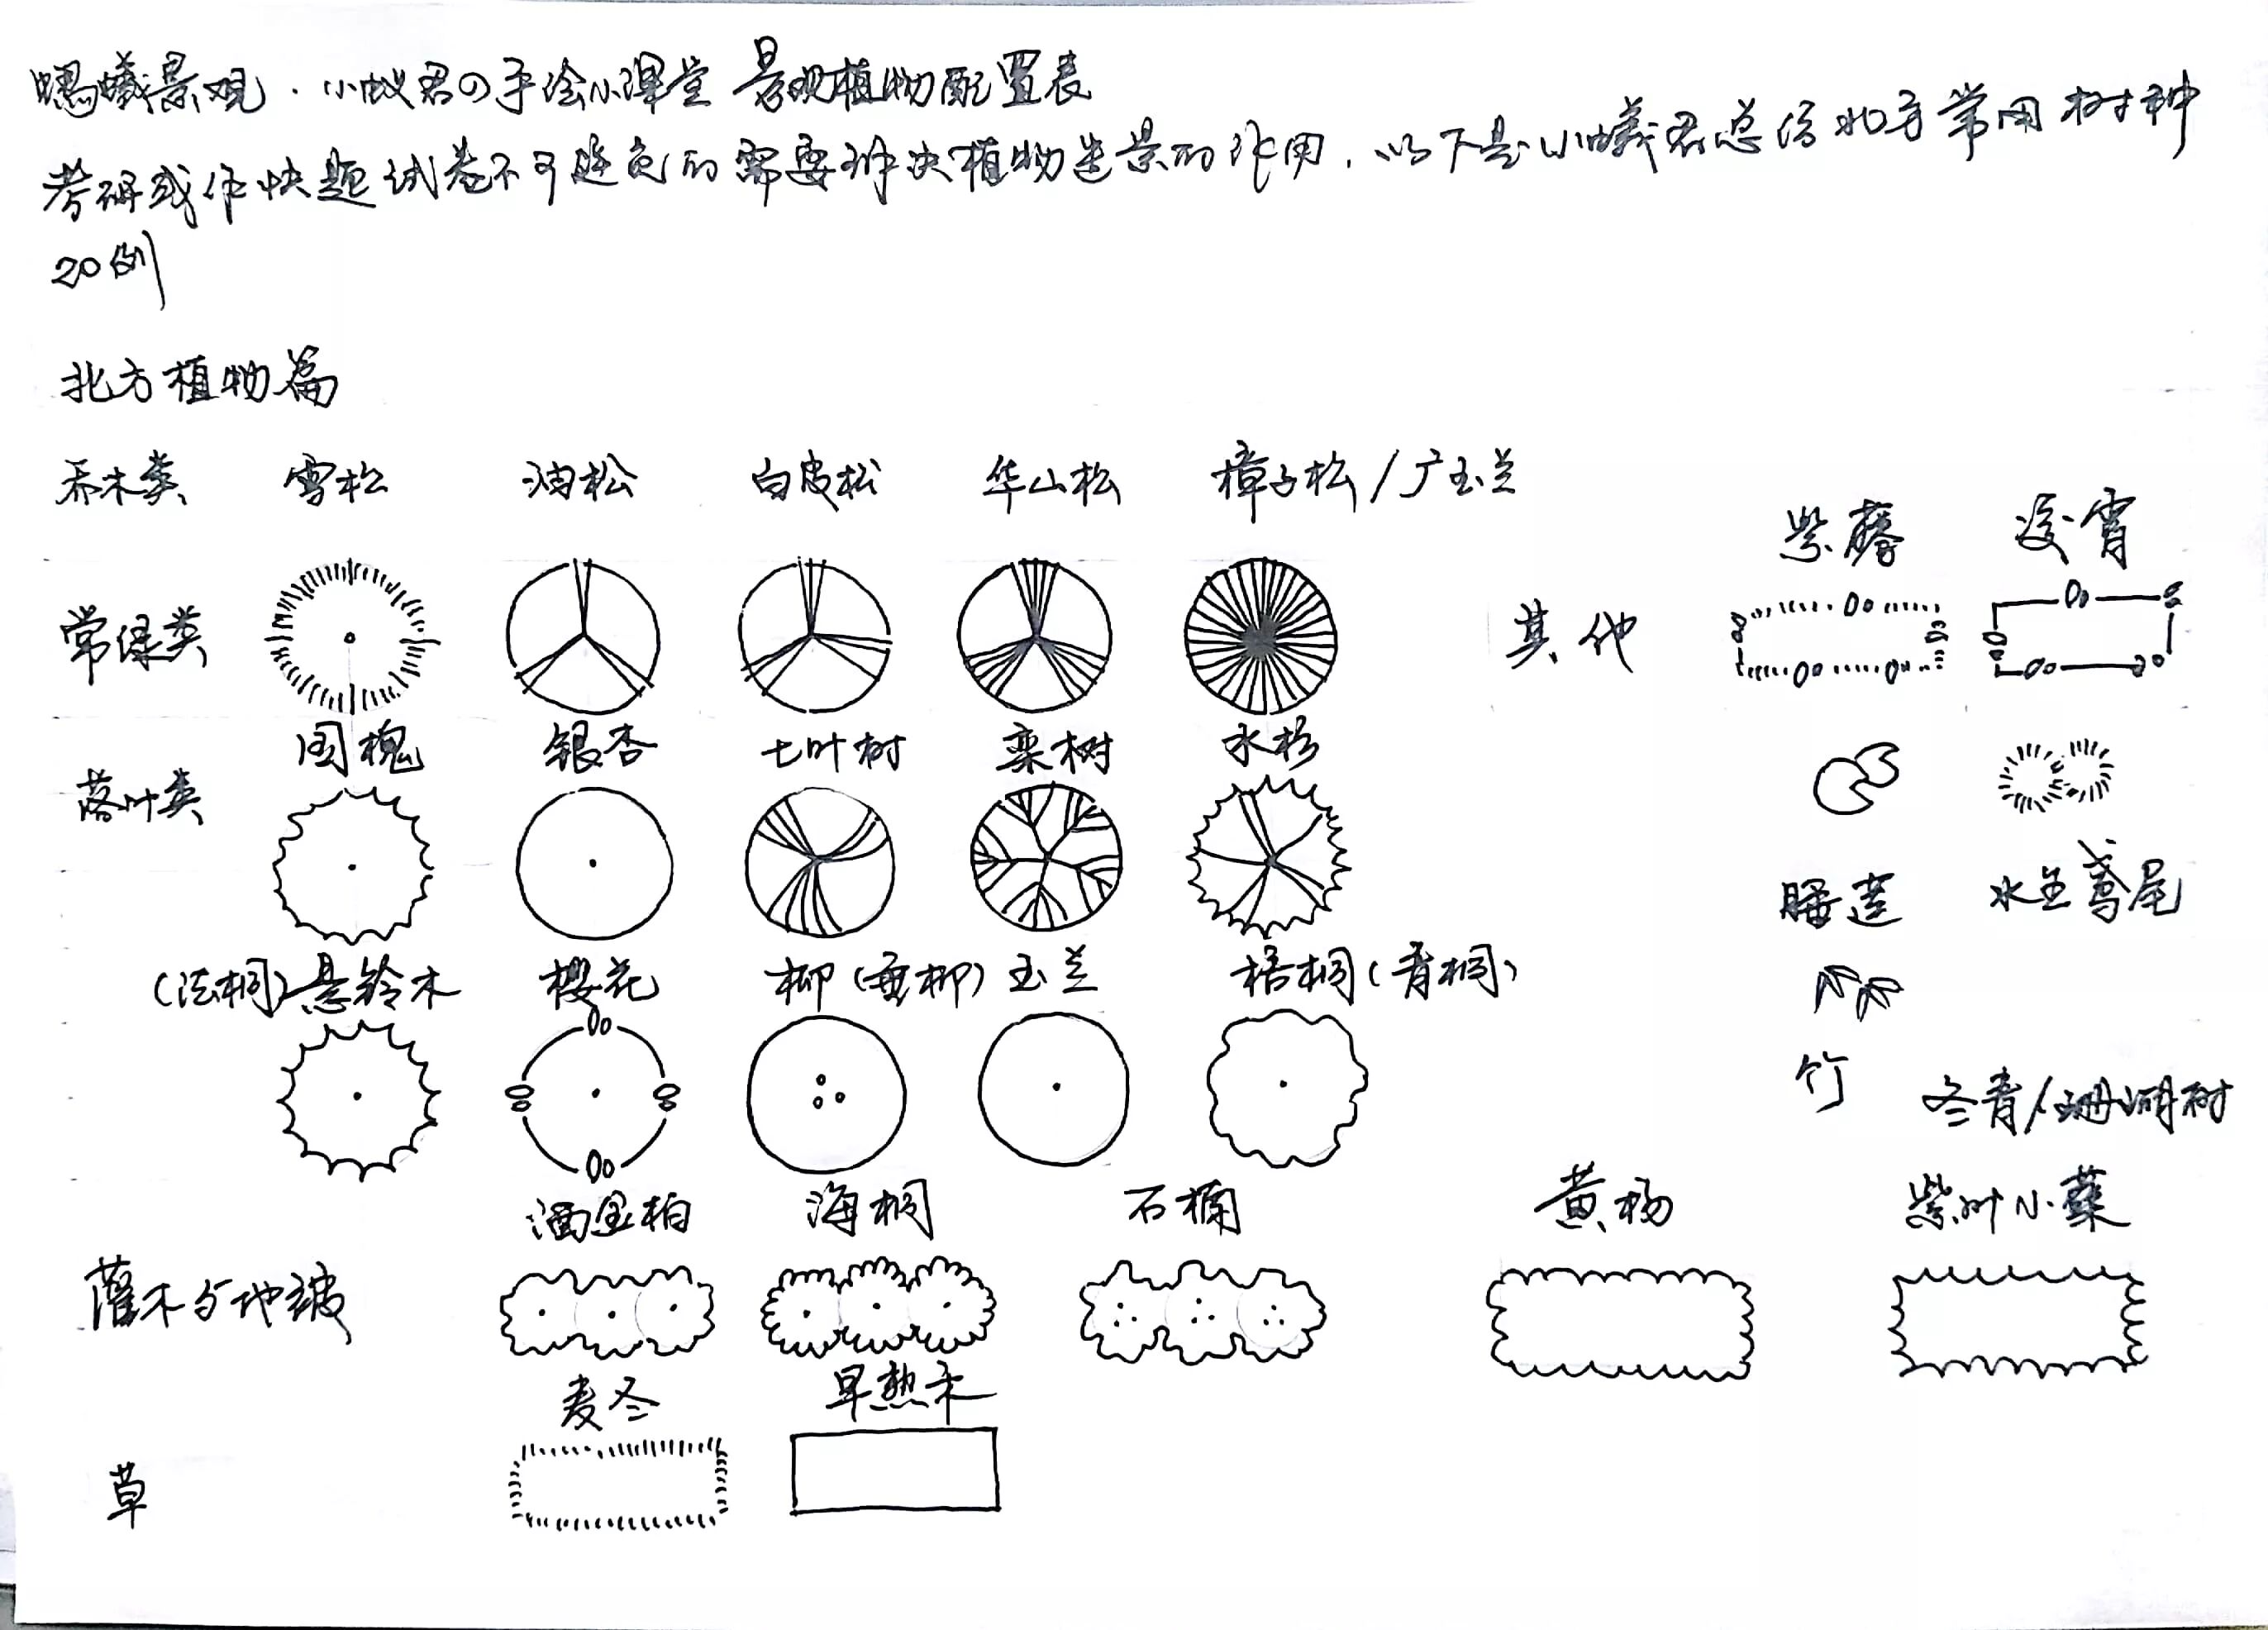 蚂蚁景观·小蚁君の手绘小课堂 景观植物配置表
考研或作快题试卷不可避免的需要解决植物造景的作用,以下是小蚁君总结北方常用树种
20例
北方植物篇
乔木类 雪松 油松 白皮松 华山松 樟子松/广玉兰
紫藤 凌霄
常绿类 其他
国槐 银杏 七叶树 栾树 水杉
落叶类
睡莲 水生鸢尾
(法桐)悬铃木 樱花 柳(垂柳) 玉兰 梧桐(青桐)
竹 冬青/珊瑚树
洒金柏 海桐 石楠 黄杨 紫叶小蘖
灌木与地被
麦冬 早熟禾
草